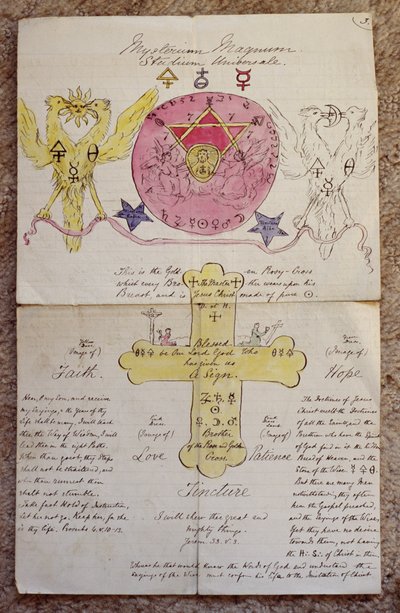 3.
Mysterium Magnum.
Studium Universale.
This is the Gold en Rosy-Cross
which every Bro the Master ther wears upon his
Breast, and is Jesus Christ made of pure ☉.
Blessed
be Our Lord God Who
has given us
A Sign.
(Image of)
Faith.
(Image of)
Hope
Hear, O my Son, and receive
my Sayings, & the Years of thy
Life shall be many. I will teach
thee the Way of Wisdom, I will
lead thee in the right Paths.
When thou goest, thy Steps
shall not be straitened, and
when thou runnest thou
shalt not stumble.
Take fast Hold of Instruction,
let her not go. Keep her, for she
is thy Life. Proverbs 4. v. 10-13.
(Image of)
Love
Brother
of the Rose and Golden
Cross
(Image of)
Patience
The Doctrines of Jesus
Christ excell the Doctrines
of all the Saints, and the
Brethren who have the Spirit
of God find in it the Hidden
Bread of Heaven and the
Stone of the Wise
But there are many Men
notwithstanding, they often
hear the Gospel preached,
and the Sayings of the Wise,
yet they have no desire
towards them, not having
the H: S: of Christ in them.
Tincture
I will shew thee great and
mighty Things.
Jerem. 33. v. 3.
Whoever he that would know the Words of God and understand the
Sayings of the Wise must conform his Life to the Imitation of Christ